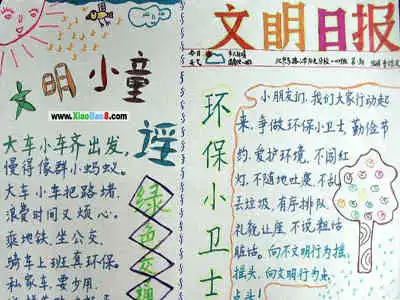 文明小童谣
www.XiaoBao8.com
大车小车齐出发,
慢得像群小蚂蚁。
大车小车把路堵,
浪费时间又烦心。
乘地铁,坐公交,
骑车上班真环保。
私家车要少用,
绿色交通
文明日报
环保小卫士
小朋友们,我们大家行动起
来,争做环保小卫士,勤俭节
约,爱护环境,不闯红
灯,不随地吐痰,不乱
丢垃圾,有序排队,
礼貌让座,不说粗话
脏话。向不文明行为摇
摇头,向文明行为点
点头